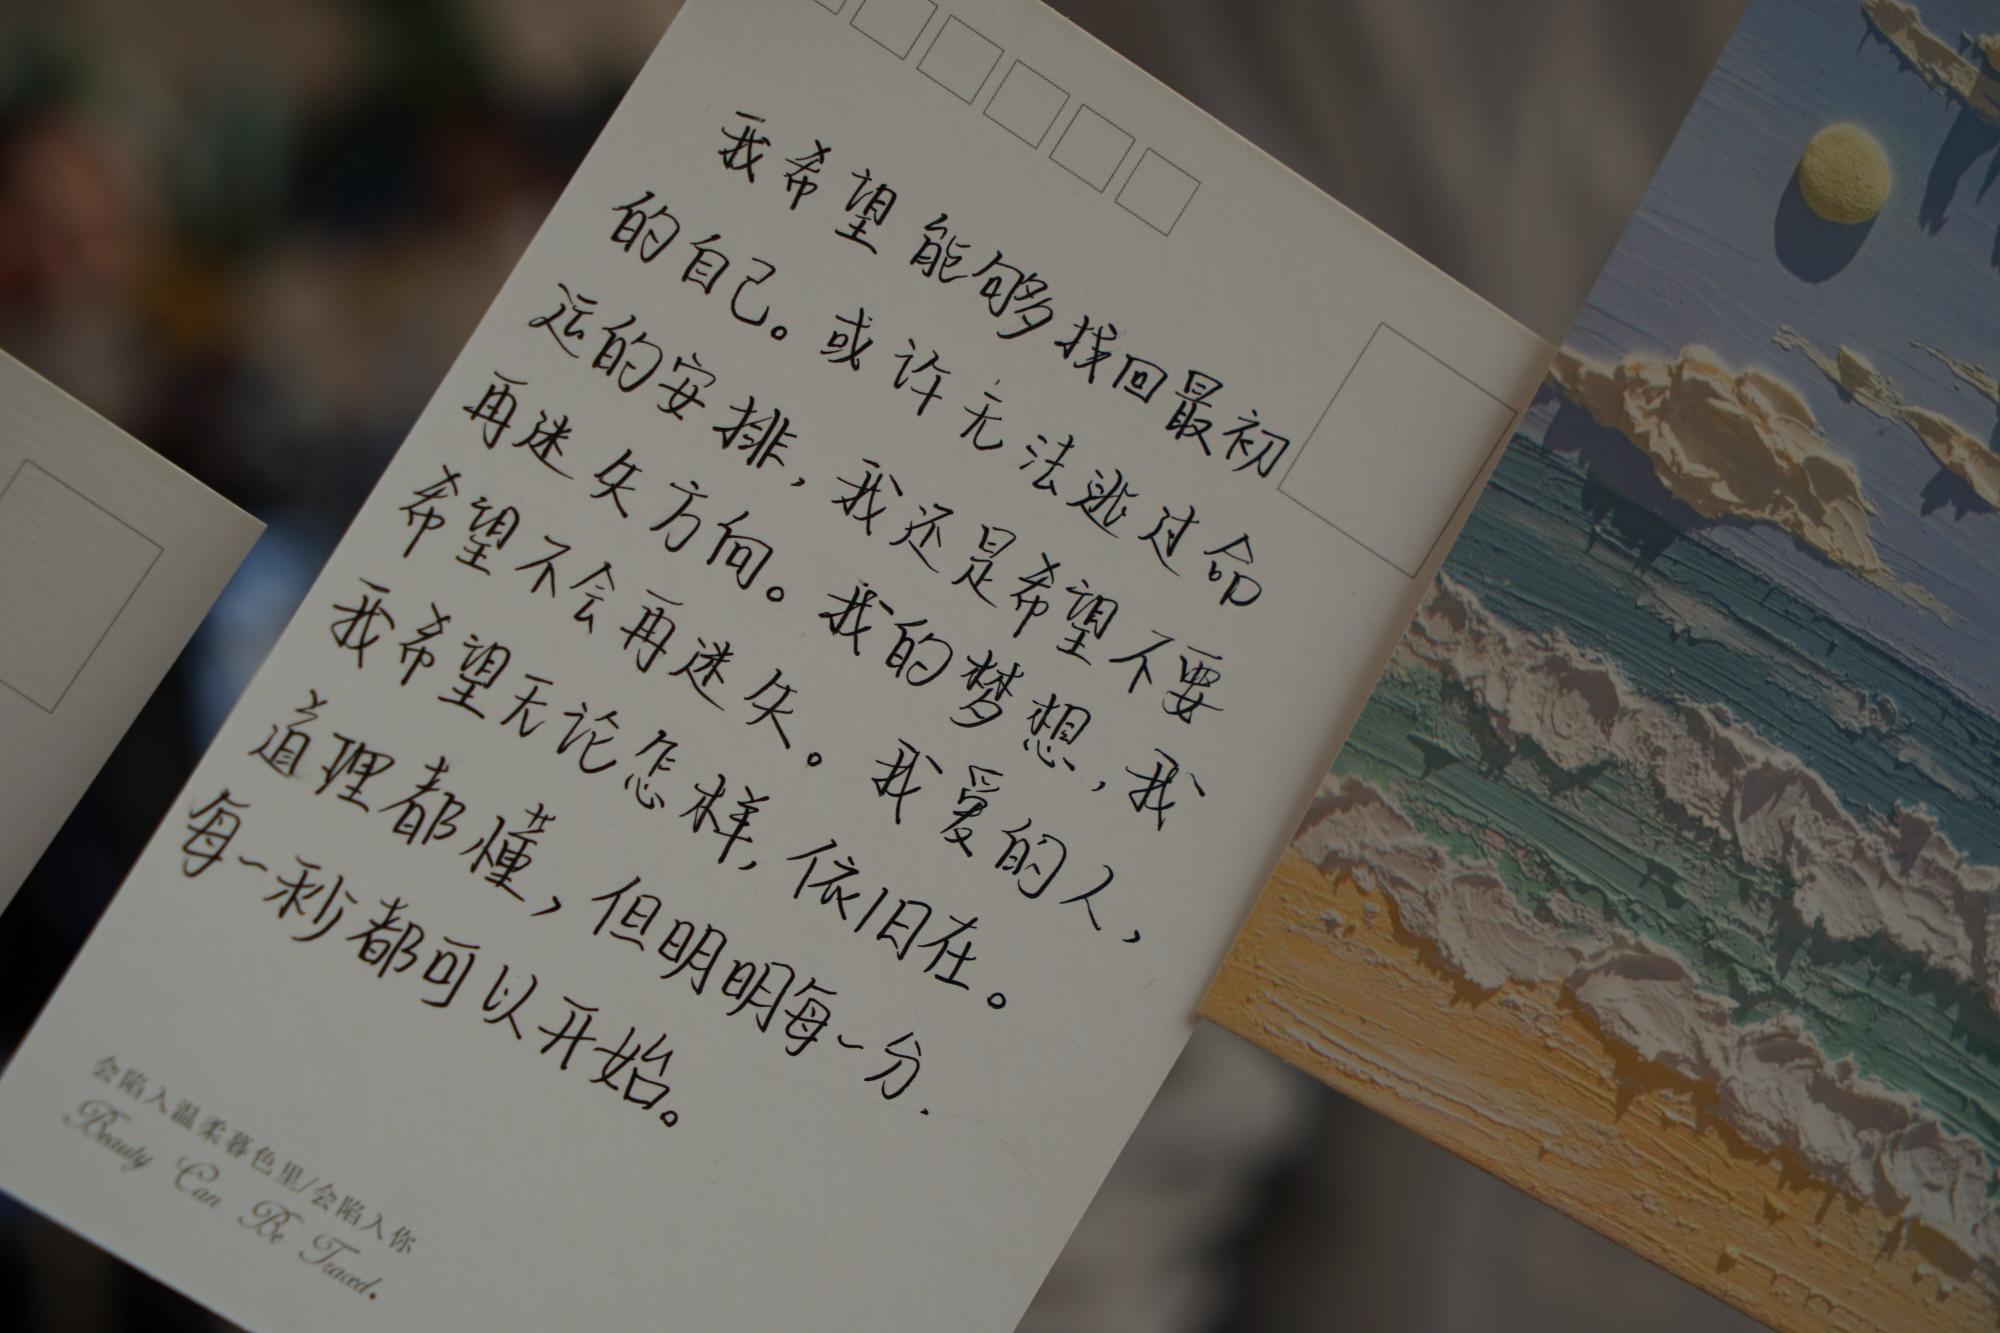 我希望能够找回最初
的自己。或许无法逃过命
运的安排，我还是希望不要
再迷失方向。我的梦想，我
希望不会再迷失。我爱的人，
我希望无论怎样，依旧在。
道理都懂，但明明每一分.
每一秒都可以开始。
会陷入温柔暮色里/会陷入你
Beauty Can Be Traced.